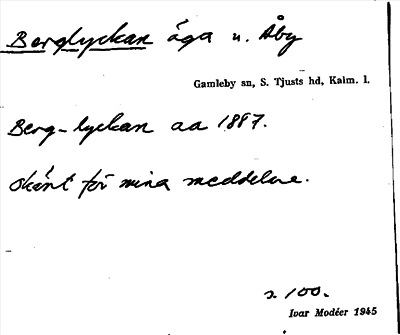 Berglyckan äga u. Åby
Gamleby sn, S. Tjusts hd, Kalm. l.
Berg-lyckan aa 1887.
okänt för mina meddelare.
s. 100.
Ivar Modéer 1945